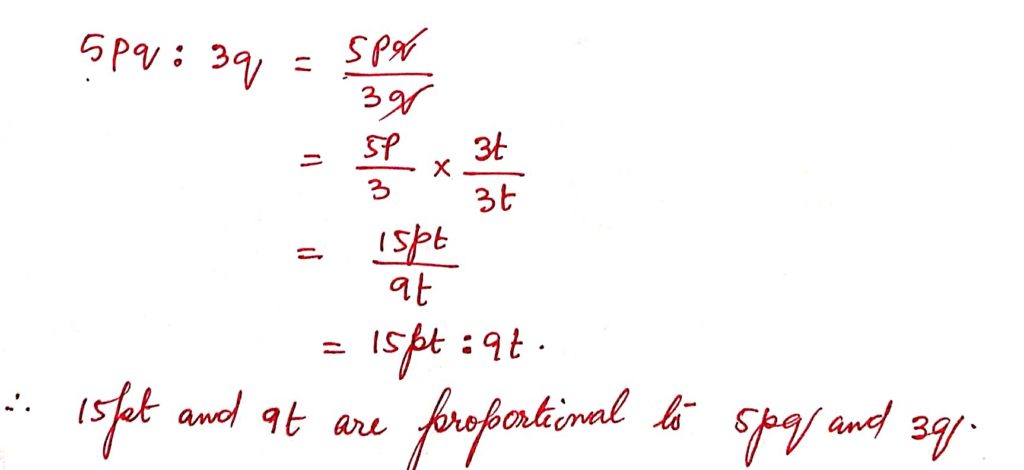 5pq : 3q = 5pq/3q
= 5p/3 × 3t/3t
= 15pt/9t
= 15pt : 9t.
∴ 15pt and 9t are proportional to 5pq and 3q.